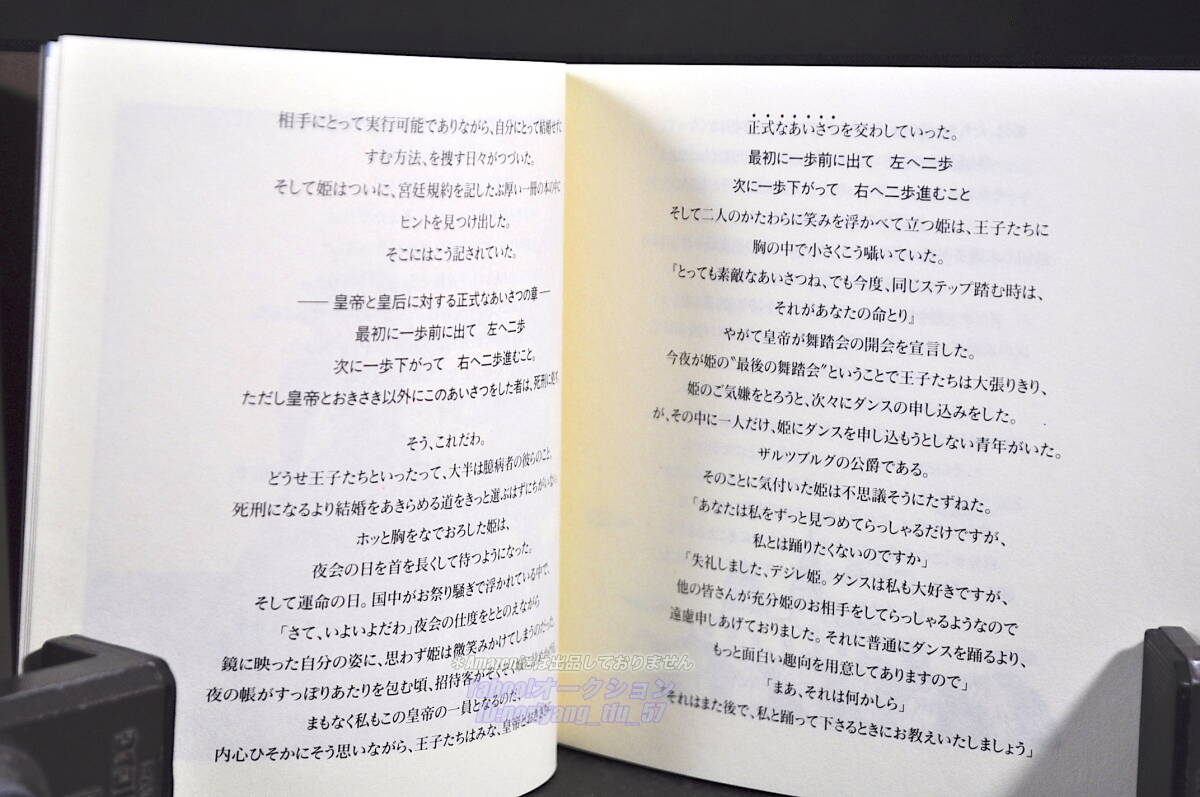 相手にとって実行可能でありながら、自分にとって結婚せずに
すむ方法、を捜す日々がつづいた。
そして姫はついに、宮廷規約を記したぶ厚い一冊の本の中に
ヒントを見つけ出した。
そこにはこう記されていた。
―― 皇帝と皇后に対する正式なあいさつの章―
最初に一歩前に出て　左へ二歩
次に一歩下がって　右へ二歩進むこと。
ただし皇帝とおきさき以外にこのあいさつをした者は、死刑に処す
そう、これだわ。
どうせ王子たちといったって、大半は臆病者の彼らのこと、
死刑になるより結婚をあきらめる道をきっと選ぶはずにちがいない
ホッと胸をなでおろした姫は、
夜会の日を首を長くして待つようになった。
そして運命の日。国中がお祭り騒ぎで浮かれている中で、
「さて、いよいよだわ」夜会の仕度をととのえながら
鏡に映った自分の姿に、思わず姫は微笑みかけてしまうのだった。
夜の帳がすっぽりあたりを包む頃、招待客がぞくぞく
まもなく私もこの皇帝の一員となるのだ。
内心ひそかにそう思いながら、王子たちはみな、皇帝とおきさき
正式なあいさつを交わしていった。
最初に一歩前に出て　左へ二歩
次に一歩下がって　右へ二歩進むこと
そして二人のかたわらに笑みを浮かべて立つ姫は、王子たちに
胸の中で小さくこう囁いていた。
『とっても素敵なあいさつね、でも今度、同じステップ踏む時は、
それがあなたの命とり』
やがて皇帝が舞踏会の開会を宣言した。
今夜が姫の〝最後の舞踏会〟ということで王子たちは大張りきり、
姫のご気嫌をとろうと、次々にダンスの申し込みをした。
が、その中に一人だけ、姫にダンスを申し込もうとしない青年がいた。
ザルツブルグの公爵である。
そのことに気付いた姫は不思議そうにたずねた。
「あなたは私をずっと見つめてらっしゃるだけですが、
私とは踊りたくないのですか」
「失礼しました、デジレ姫。ダンスは私も大好きですが、
他の皆さんが充分姫のお相手をしてらっしゃるようなので
遠慮申しあげておりました。それに普通にダンスを踊るより、
もっと面白い趣向を用意してありますので」
「まあ、それは何かしら」
「それはまた後で、私と踊って下さるときにお教えいたしましょう」
※Amazonには出品しておりません
Yahoo!オークション